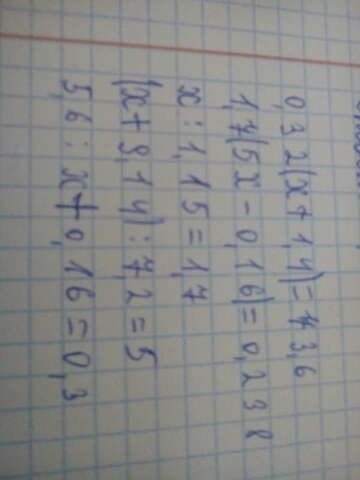 0,32(x+1,4)=73,6
1,7(5x-0,16)=0,238
x:1,15=1,7
(x+9,14):7,2=5
5,6:x+0,16=0,3